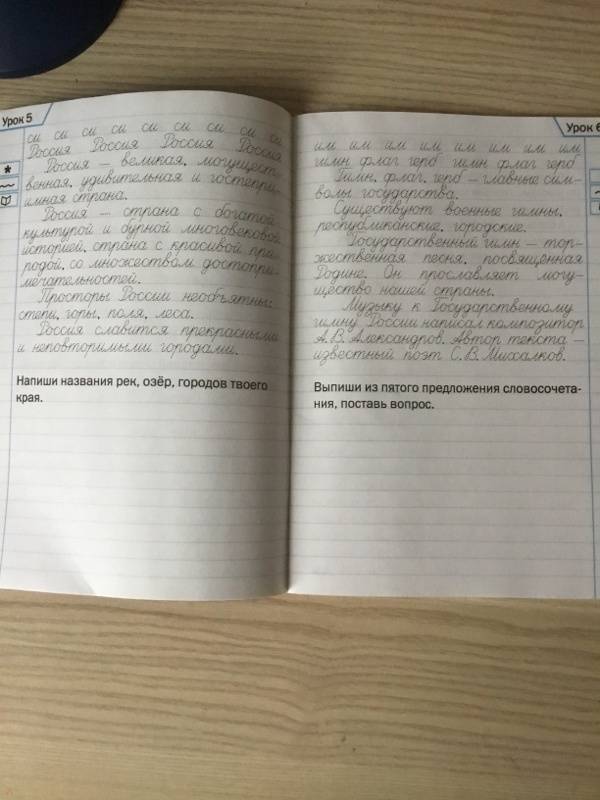 Урок 5
си си си си си си си си си
Россия Россия Россия Россия
Россия – великая, могущест-
венная, удивительная и гостепри-
имная страна.
Россия – страна с богатой
культурой и бурной многовековой
историей, страна с красивой при-
родой, со множеством достопри-
мечательностей.
Просторы России необъятны:
степи, горы, поля, леса.
Россия славится прекрасными
и неповторимыми городами.
Напиши названия рек, озёр, городов твоего
края.
Урок 6
им им им им им им им им
гимн флаг герб гимн флаг герб
Гимн, флаг, герб – главные сим-
волы государства.
Существуют военные гимны,
республиканские, городские.
Государственный гимн – тор-
жественная песня, посвящённая
Родине. Он прославляет могу-
щество нашей страны.
Музыку к Государственному
гимну России написал композитор
А. В. Александров. Автор текста –
известный поэт С. В. Михалков.
Выпиши из пятого предложения словосочета-
ния, поставь вопрос.